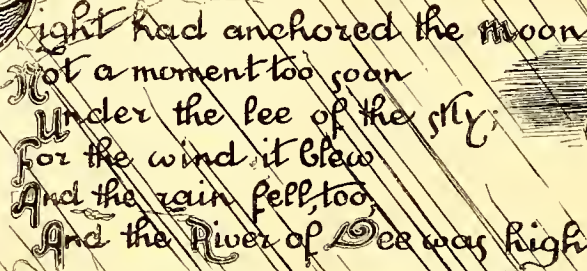 ight had anchored the moon
Not a moment too soon
Under the lee of the sky;
For the wind it blew
And the rain fell, too,
And the River of Dee was high